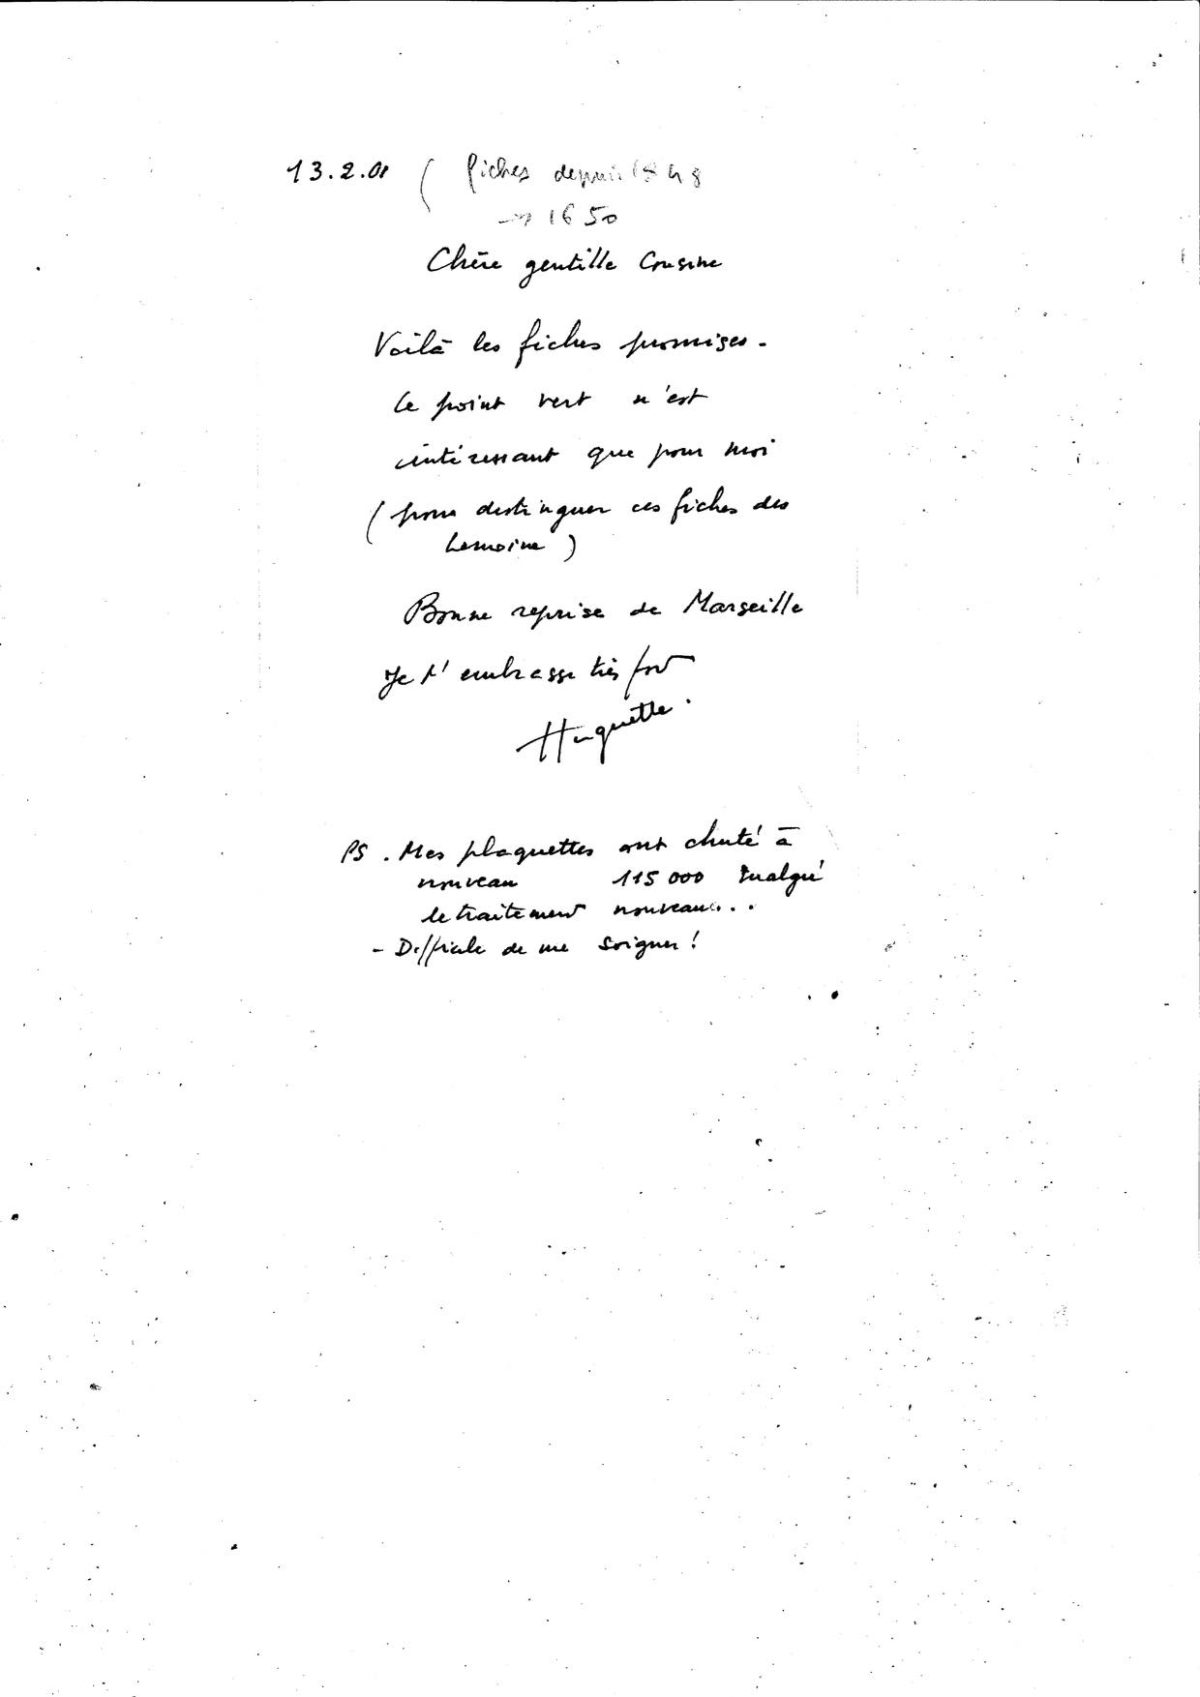 13.2.01 ( fiches depuis 1848
→ 1650
Chère gentille Cousine
Voilà les fiches promises.
Le point vert n'est
intéressant que pour moi
(pour distinguer ces fiches des
Lemoine)
Bonne reprise de Marseille
Je t'embrasse très fort
Huguette.
PS. Mes plaquettes ont chuté à
nouveau 115 000 malgré
le traitement nouveau...
- Difficile de me soigner !